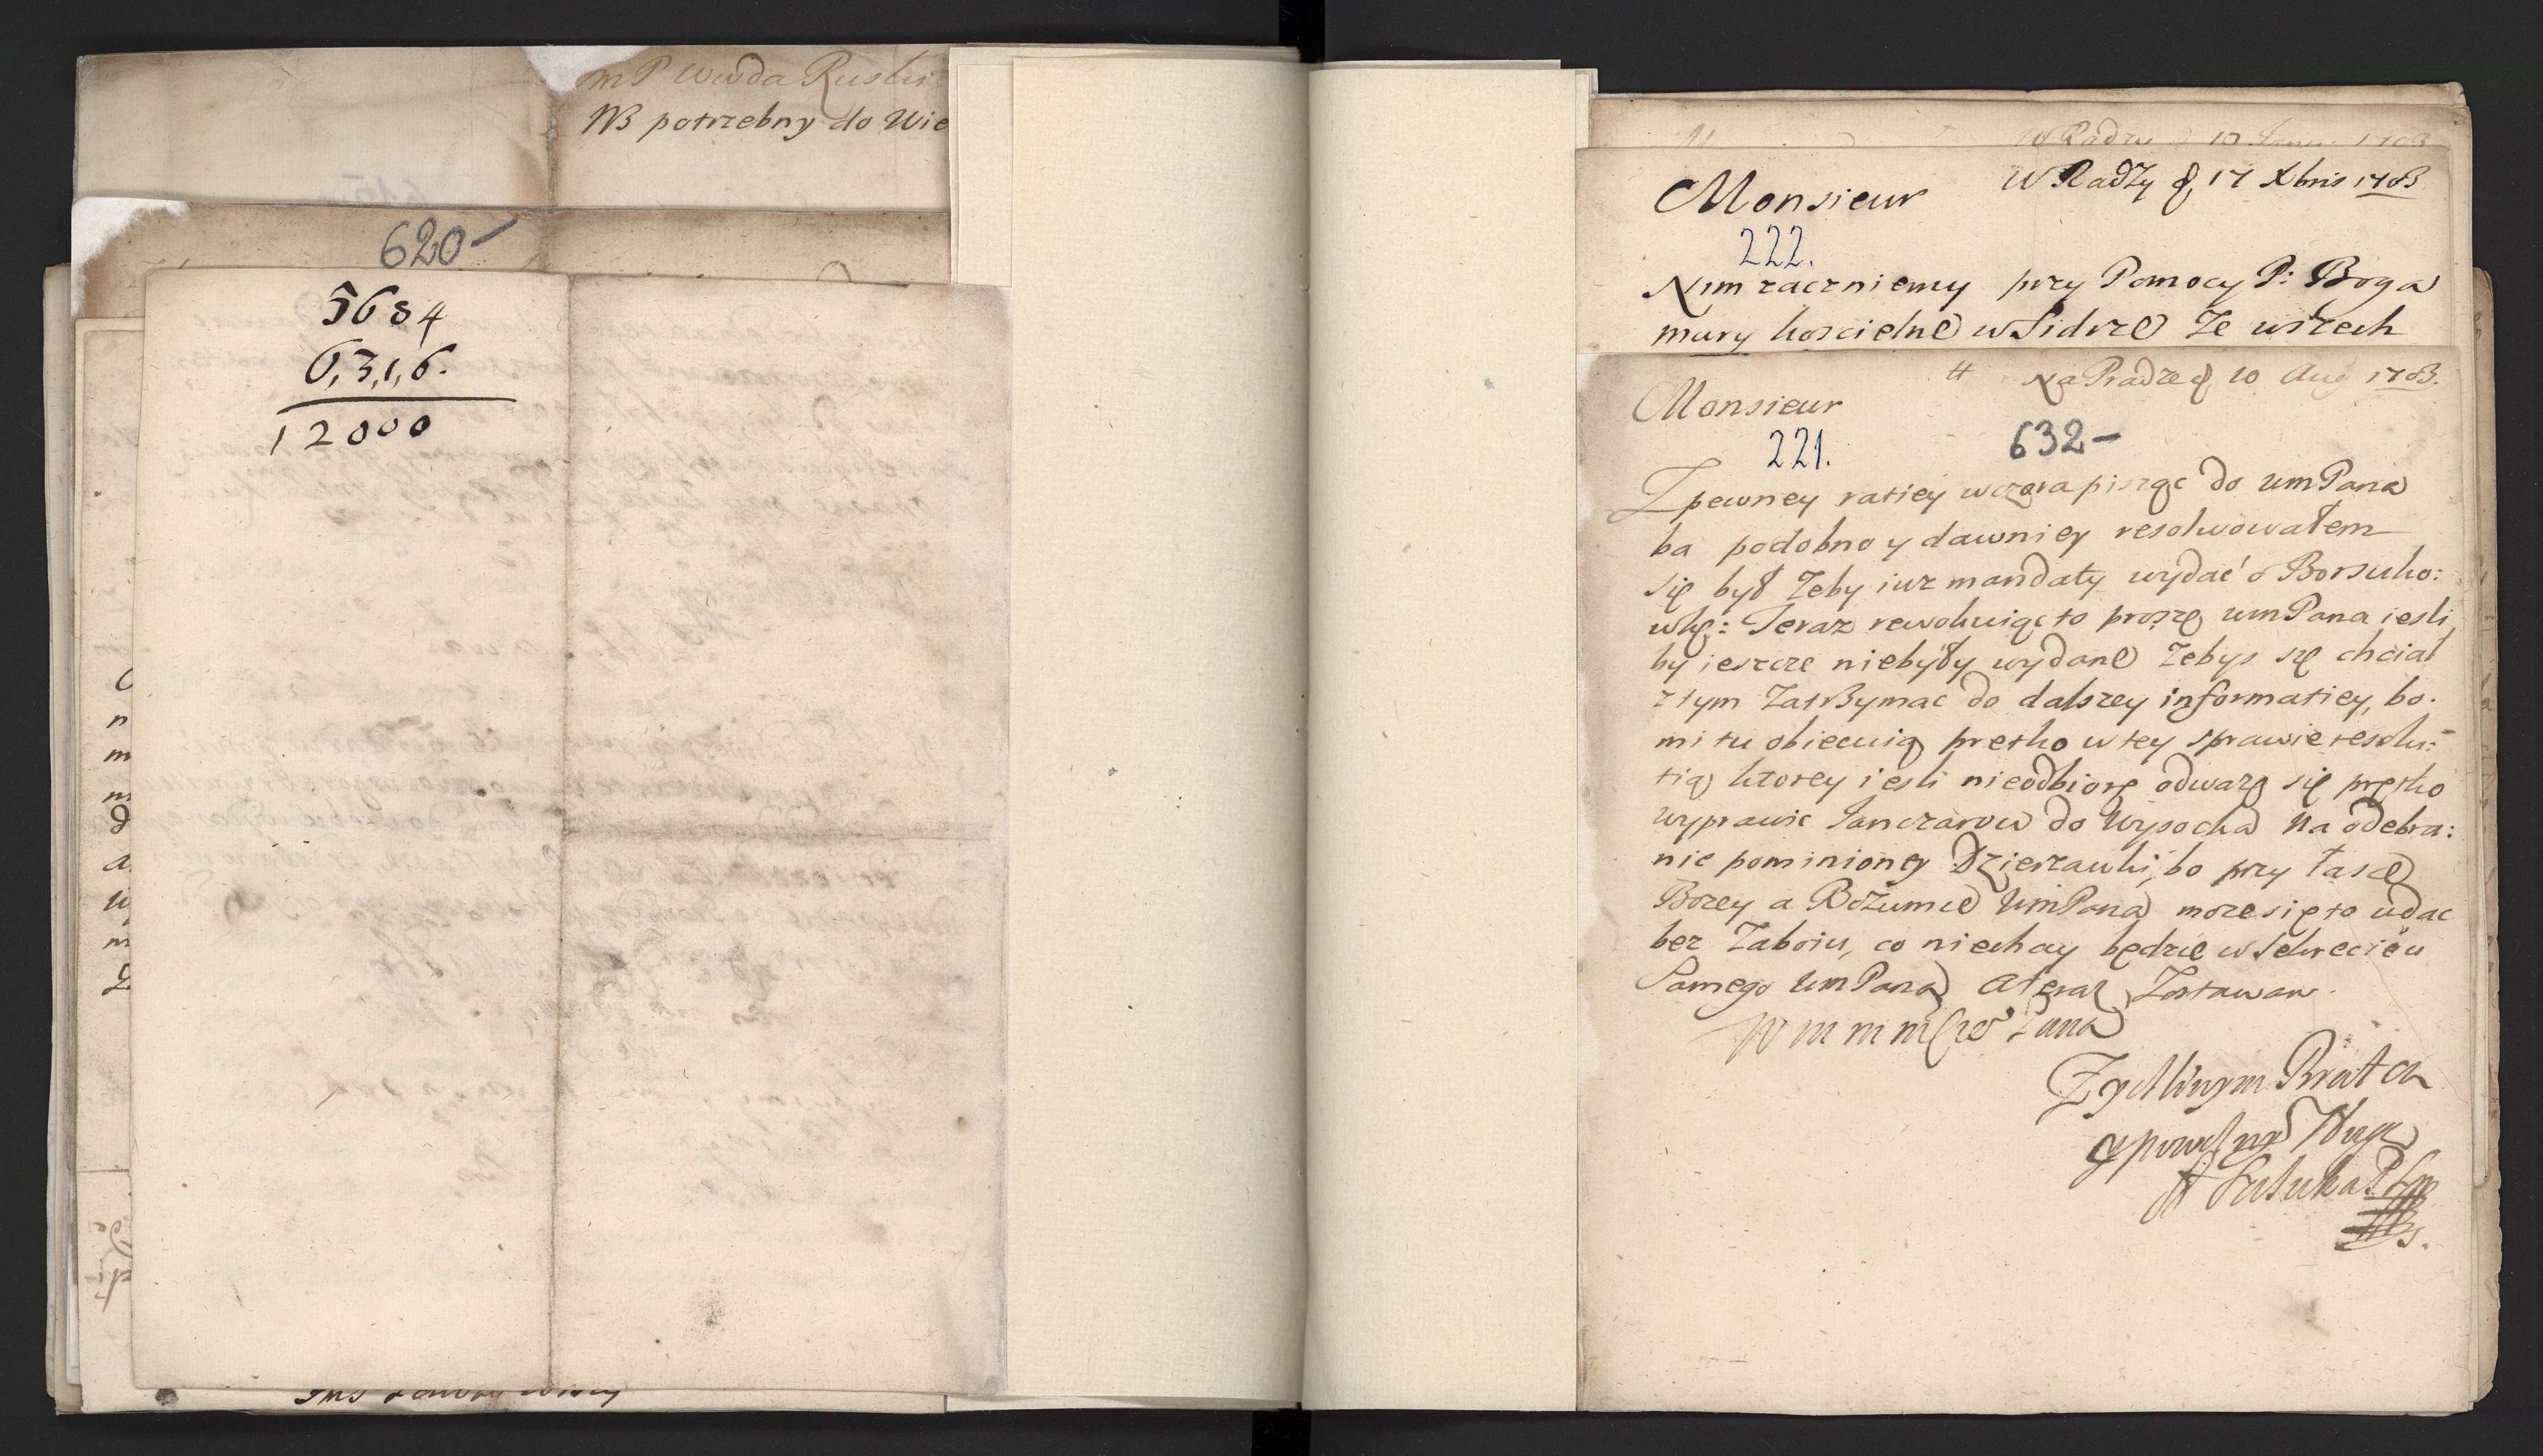 mP Wwda Ruski
NB potrzebny do Wie
620-
5684
6,3,1,6.
12000
W Radzy d, 17 Xbris 1703
Monsieur
222.
Nim zaczniemy przy Pomocy P: Boga
mury koscielne w Sidrze Ze wszech
Na Pradze d, 10 Aug 1703.
Monsieur
221.
632-
Z pewney ratiey wczora pisząc do umPana
ba podobno y dawniey resolwowałem
się był Zeby iuz mandaty wydać o Borsuko:
wkę: Teraz rewokuiąc to proszę umPana iesli
by ieszcze niebyły wydane Zebys się chciał
z tym Zatrzymac do dalszey informatiey, bo.
mi tu obiecuią prętko w tey sprawie resolu:
tią ktorey iesli nieodbiorę odwazę się prętko
wyprawic Janczarow do Wysocka na odebra:
nie pominioney Dzierzawki, bo przy łasce
Bozey a Rozumie UmPana moze się to udac
bez Zaboiu, co niechay będzie w Sekrecie u
Samego UmPana a teraz Zostawam.
W m m m Pana
Zyczliwym Bratem
y powolnym Sługą